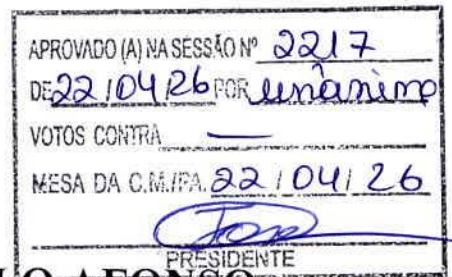 APROVADO (A) NA SESSÃO Nº 2217
DE 22/04/26 POR unânime
VOTOS CONTRA —
MESA DA C.M./PA. 22/04/26
PRESIDENTE
LO AFONSO